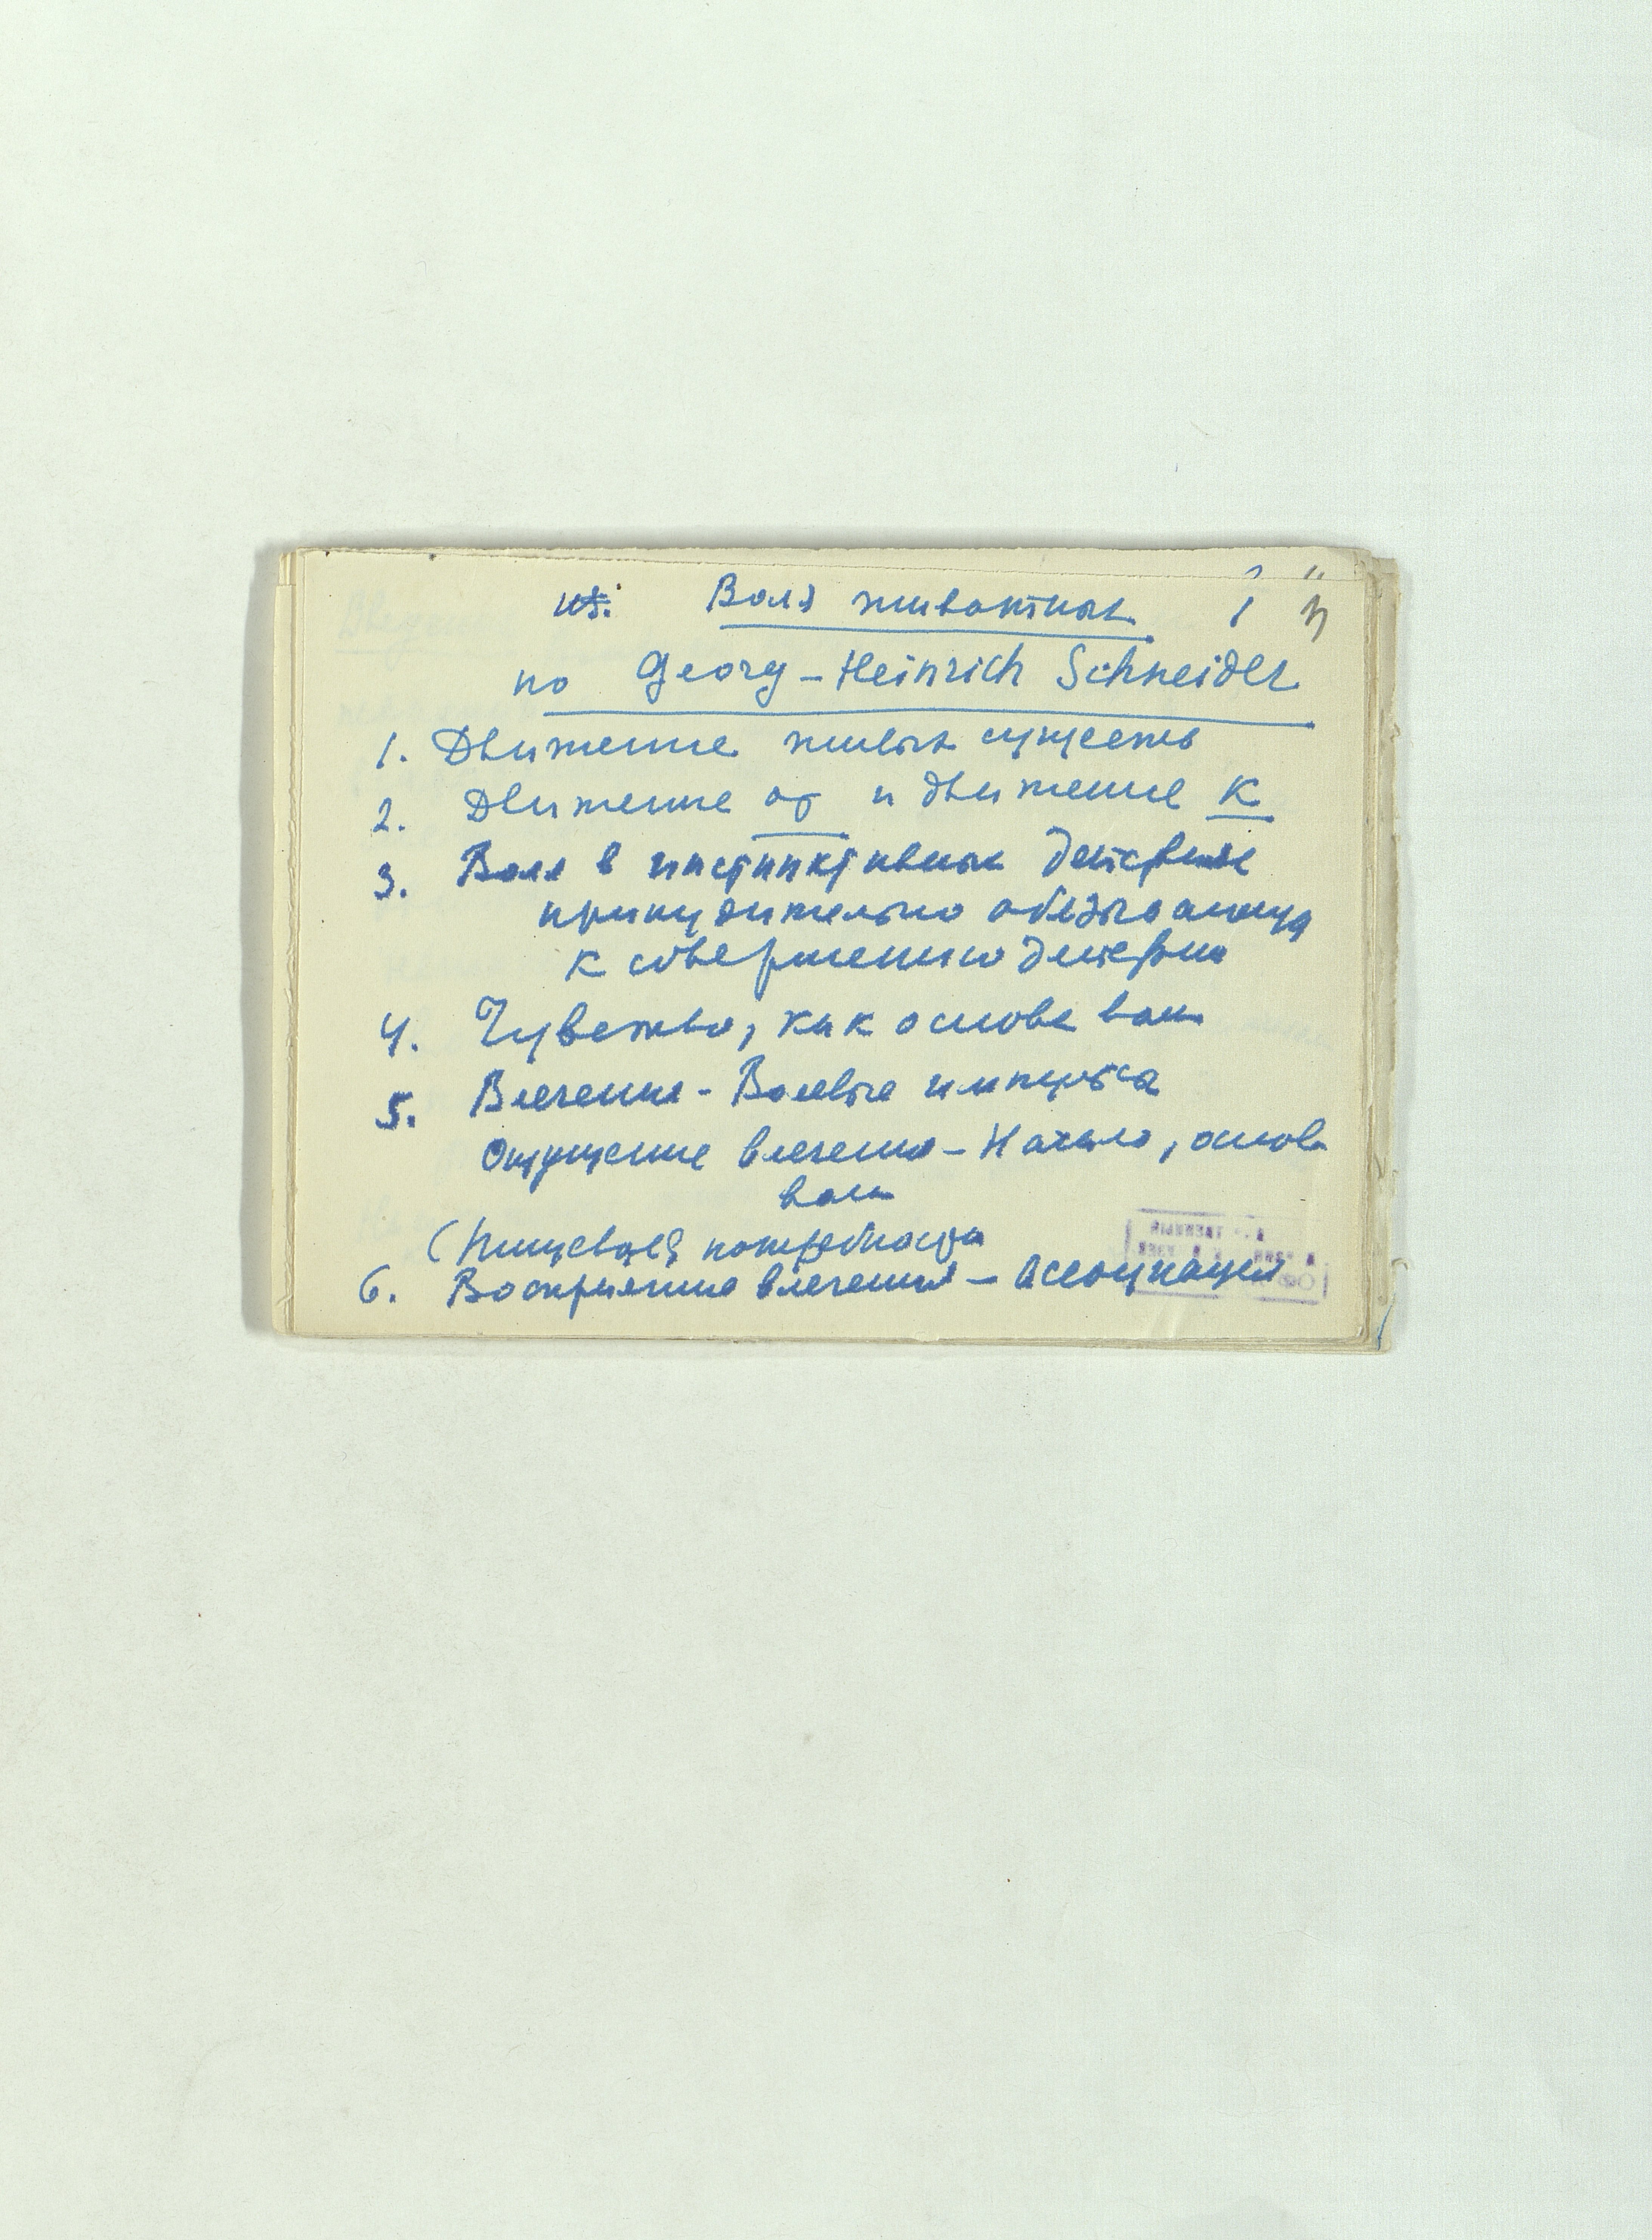 Воля животных 1
по Georg-Heinrich Schneider
1. Движение живых существ
2. Движение от и движение к
3. Воля в инстинктивных действиях
принудительно обязывающая
к совершению действия
4. Чувство, как основа воли
5. Влечения - Волевые импульса
Ощущение влечения - Начало, основа
воли
(Пищевая потребность
6. Восприятие влечения - Ассоциация